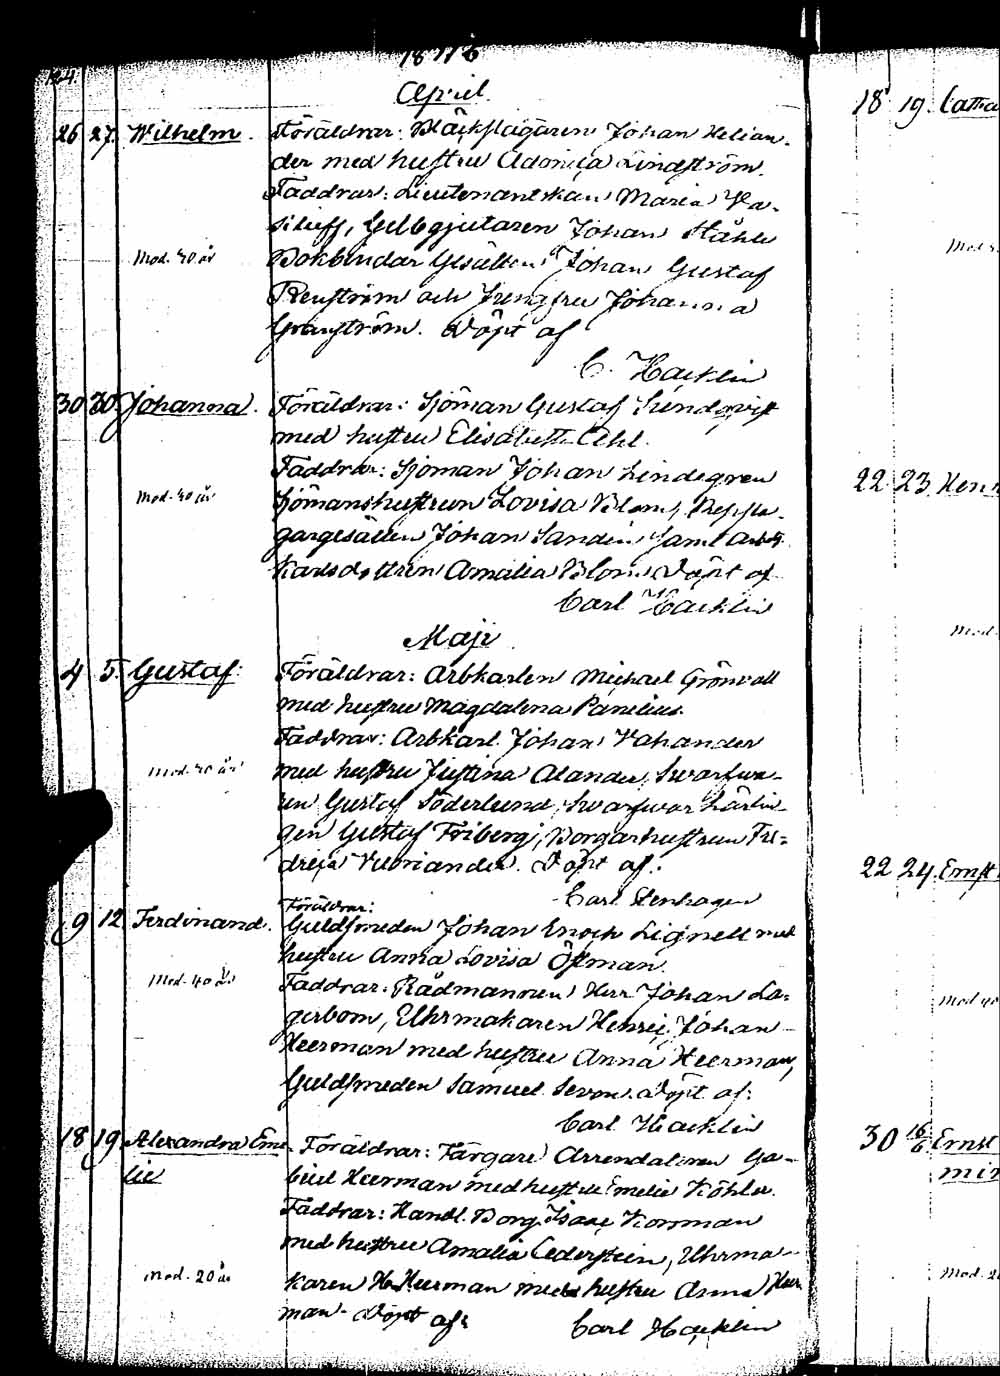 April.
26 27. Wilhelm. Föräldrar: Bläckslagaren Johan Helian-
der med hustru Adonica Lindström.
Faddrar: Lieutenantskan Maria Va-
siljeff, Gelbgjutaren Johan Ståhle
Mod. 40 år Bokbindar Gesällen Johan Gustaf
Renström och Jungfru Johanna
Granström. Döpt af
C. Hacklin
30 30. Johanna. Föräldrar: Sjöman Gustaf Sundqvist
med hustru Elisabeth Ahl.
Faddrar: Sjöman Johan Lindegren
Mod. 40 år Sjömanshustrun Lovisa Blom,
Johan Sandén samt Arb.
Karlsdottren Amalia Blom. Döpt af
Carl Hacklin
Maji
4 5. Gustaf. Föräldrar: Arbkarlen Michael Grönvall
med hustru Magdalena Panelius.
Faddrar: Arbkarl. Johan Vahander
Mod. 40 år med hustru Justina Alander, Swarfwa-
ren Gustaf Söderlund, Swarfwar Lärlin-
gen Gustaf Friberg, Borgarhustrun Fre-
drica Widriander. Döpt af:
Carl Stenhagen
Föräldrar:
9 12 Ferdinand. Guldsmeden Johan Enoch Lignell med
hustru Anna Lovisa Öhman.
Mod. 40 år Faddrar: Rådmannen Herr Johan La-
gerbom, Uhrmakaren Henric Johan
Heerman med hustru Anna Heerman,
Guldsmeden Samuel Sevon. Döpt af:
Carl Hacklin
18 19 Alexandra Eme- Föräldrar: Färgare Arrendatoren Ga-
lie briel Heerman med hustru Emelie Köhler.
Faddrar: Handl. Borg. Isaac Komman
med hustru Amalia Cederstein, Uhrma-
Mod. 20 år karen H. Heerman med hustru Anna Heer
man. Döpt af: Carl Hacklin
18 19. Catha
22 23. Hen
Mod.
22 24. Ernst
Mod 40
30 16/6 Ernst
min
Mod. 2